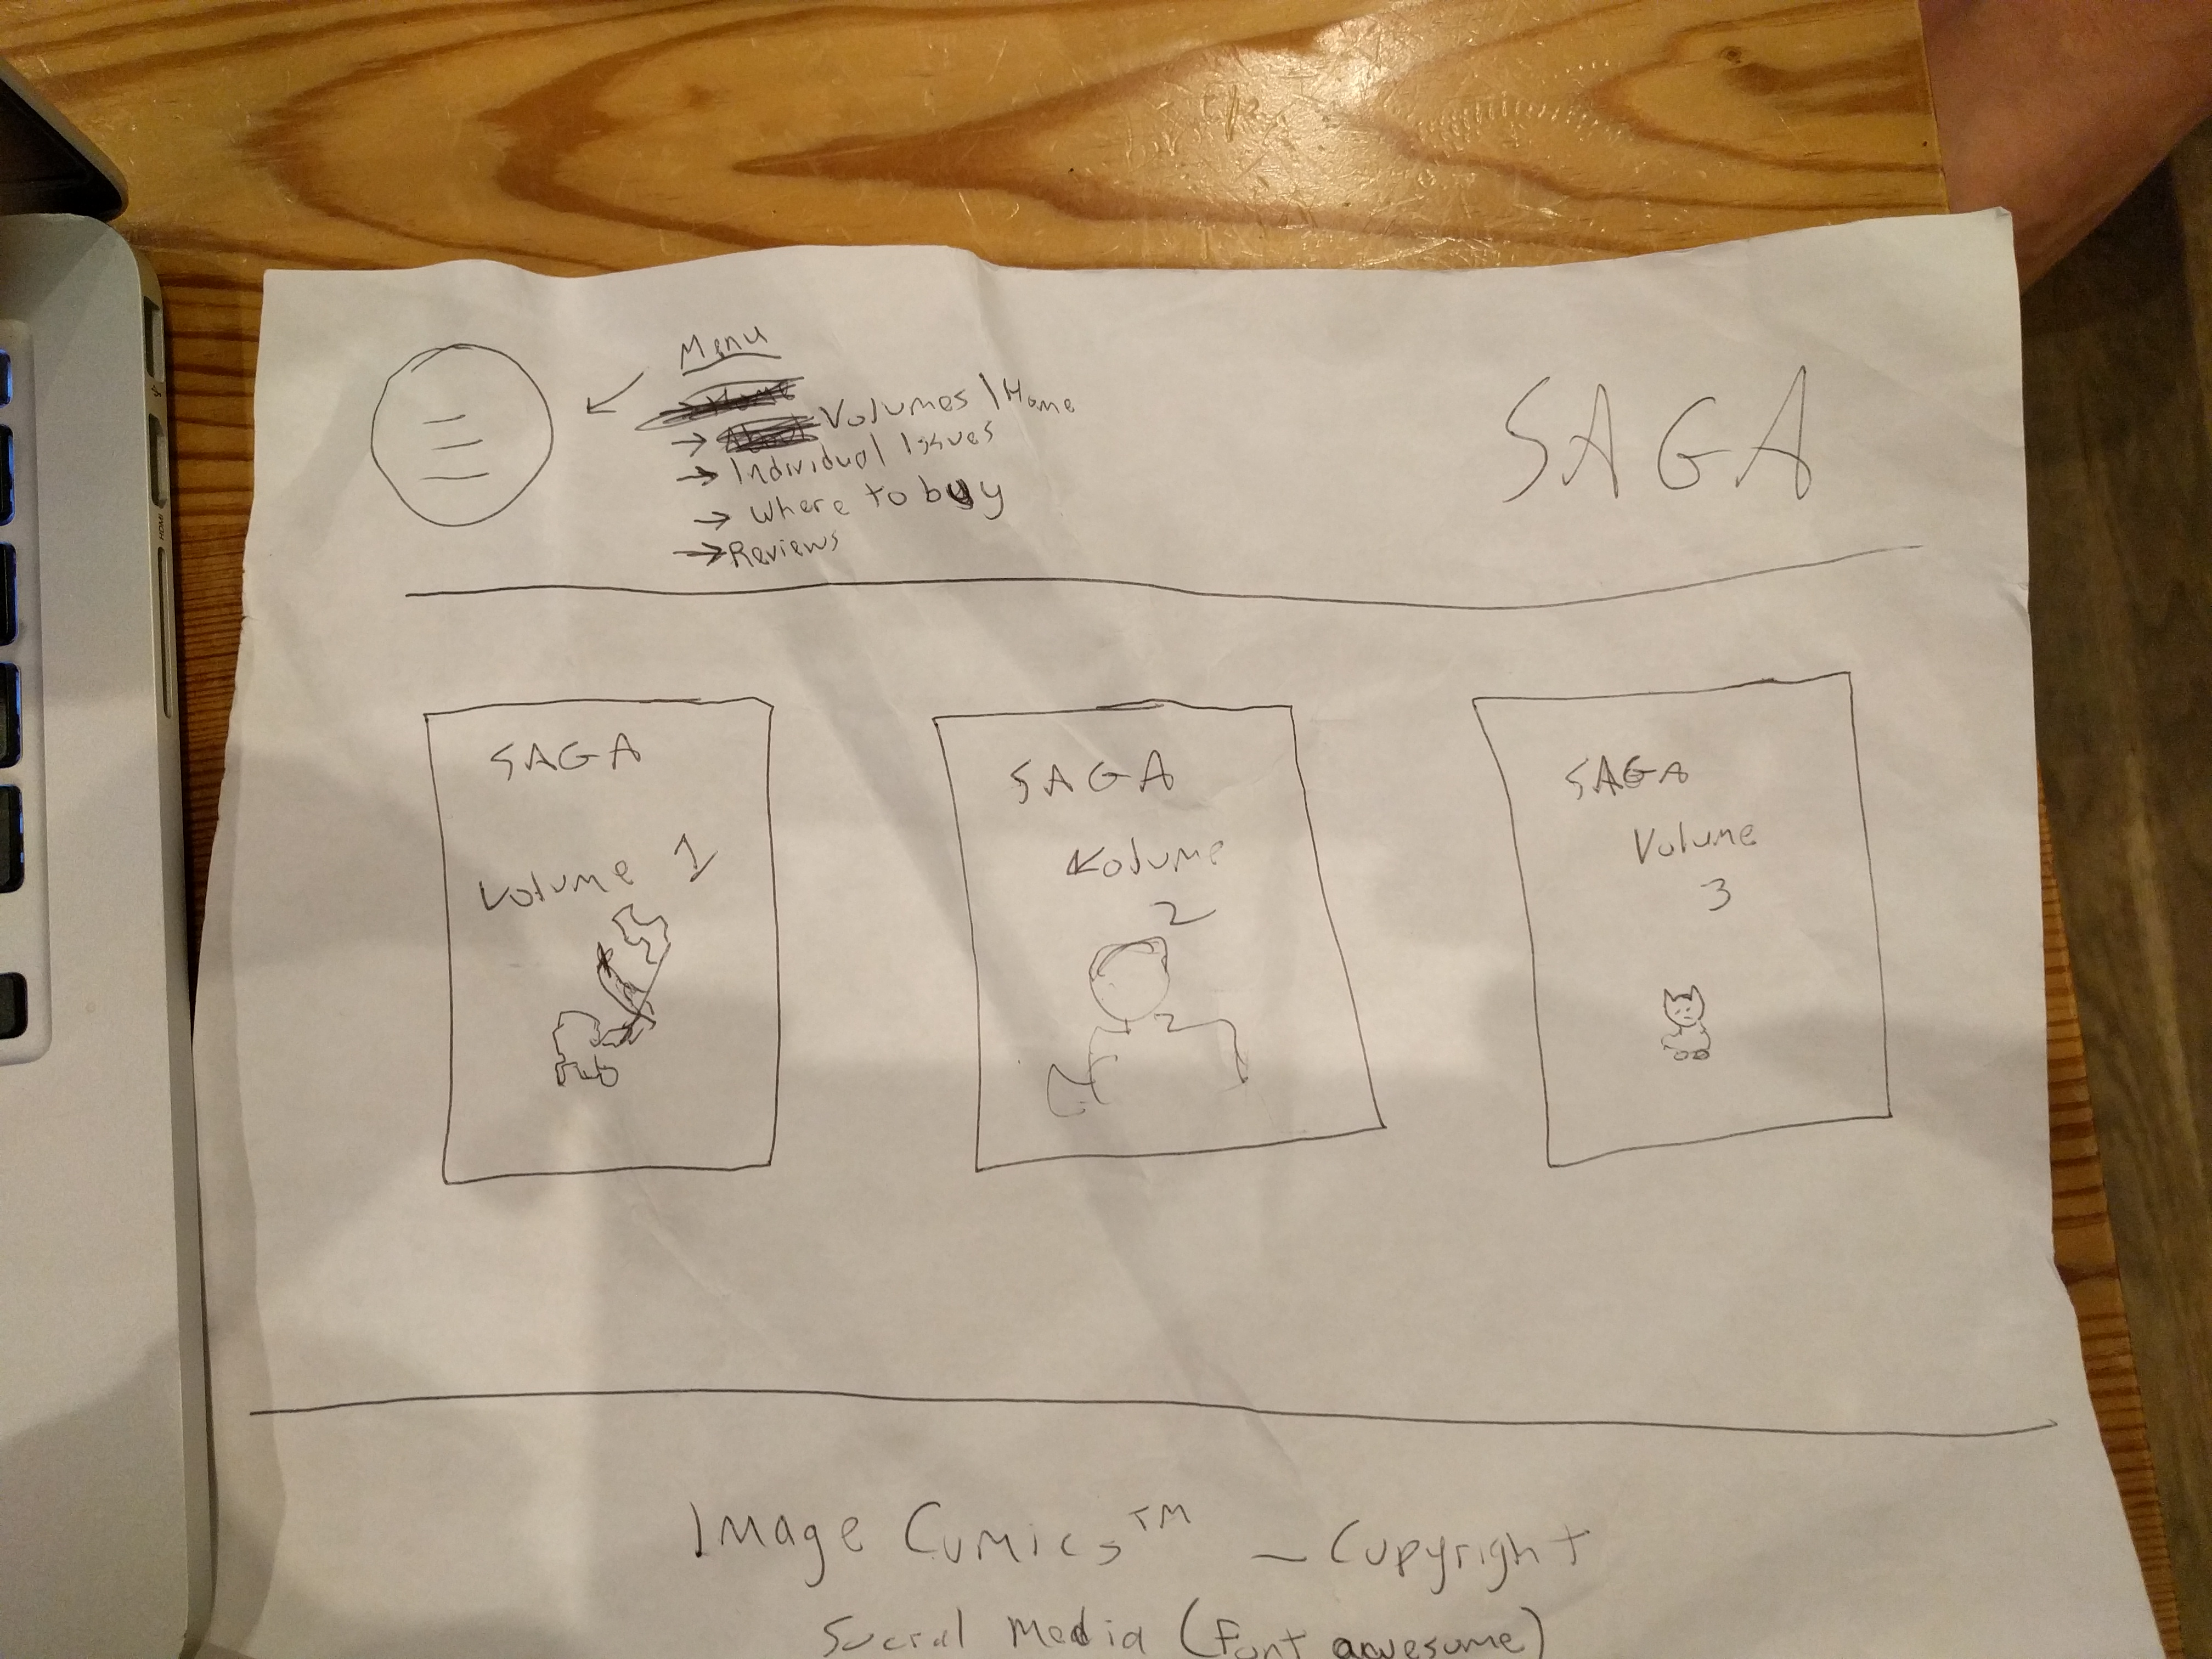 Menu
Home
→ About Volumes | Home
→ Individual Issues
→ Where to buy
→ Reviews
SAGA
SAGA
Volume 1
SAGA
Volume
2
SAGA
Volume
3
Image Comics™ — Copyright
Social Media (font awesome)
HDMI